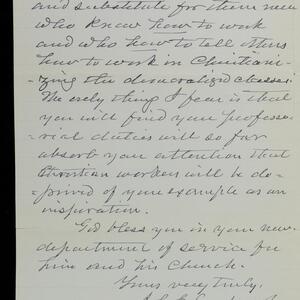 and substitute for them men
who know how to work
and who how to tell others
how to work in Christian-
-izing the demoralized classes.
The only thing I fear is that
you will find your profess-
-orial duties will so far
absorb your attention that
Christian workers will be de-
-prived of your example as an
inspiration.
God bless you in your new
department of service for
him and his Church.
Yours very truly,